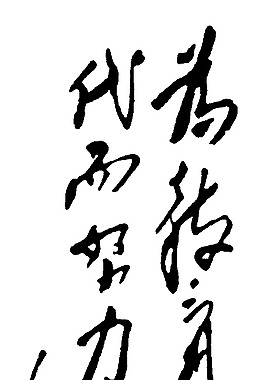 为教育
代而努力